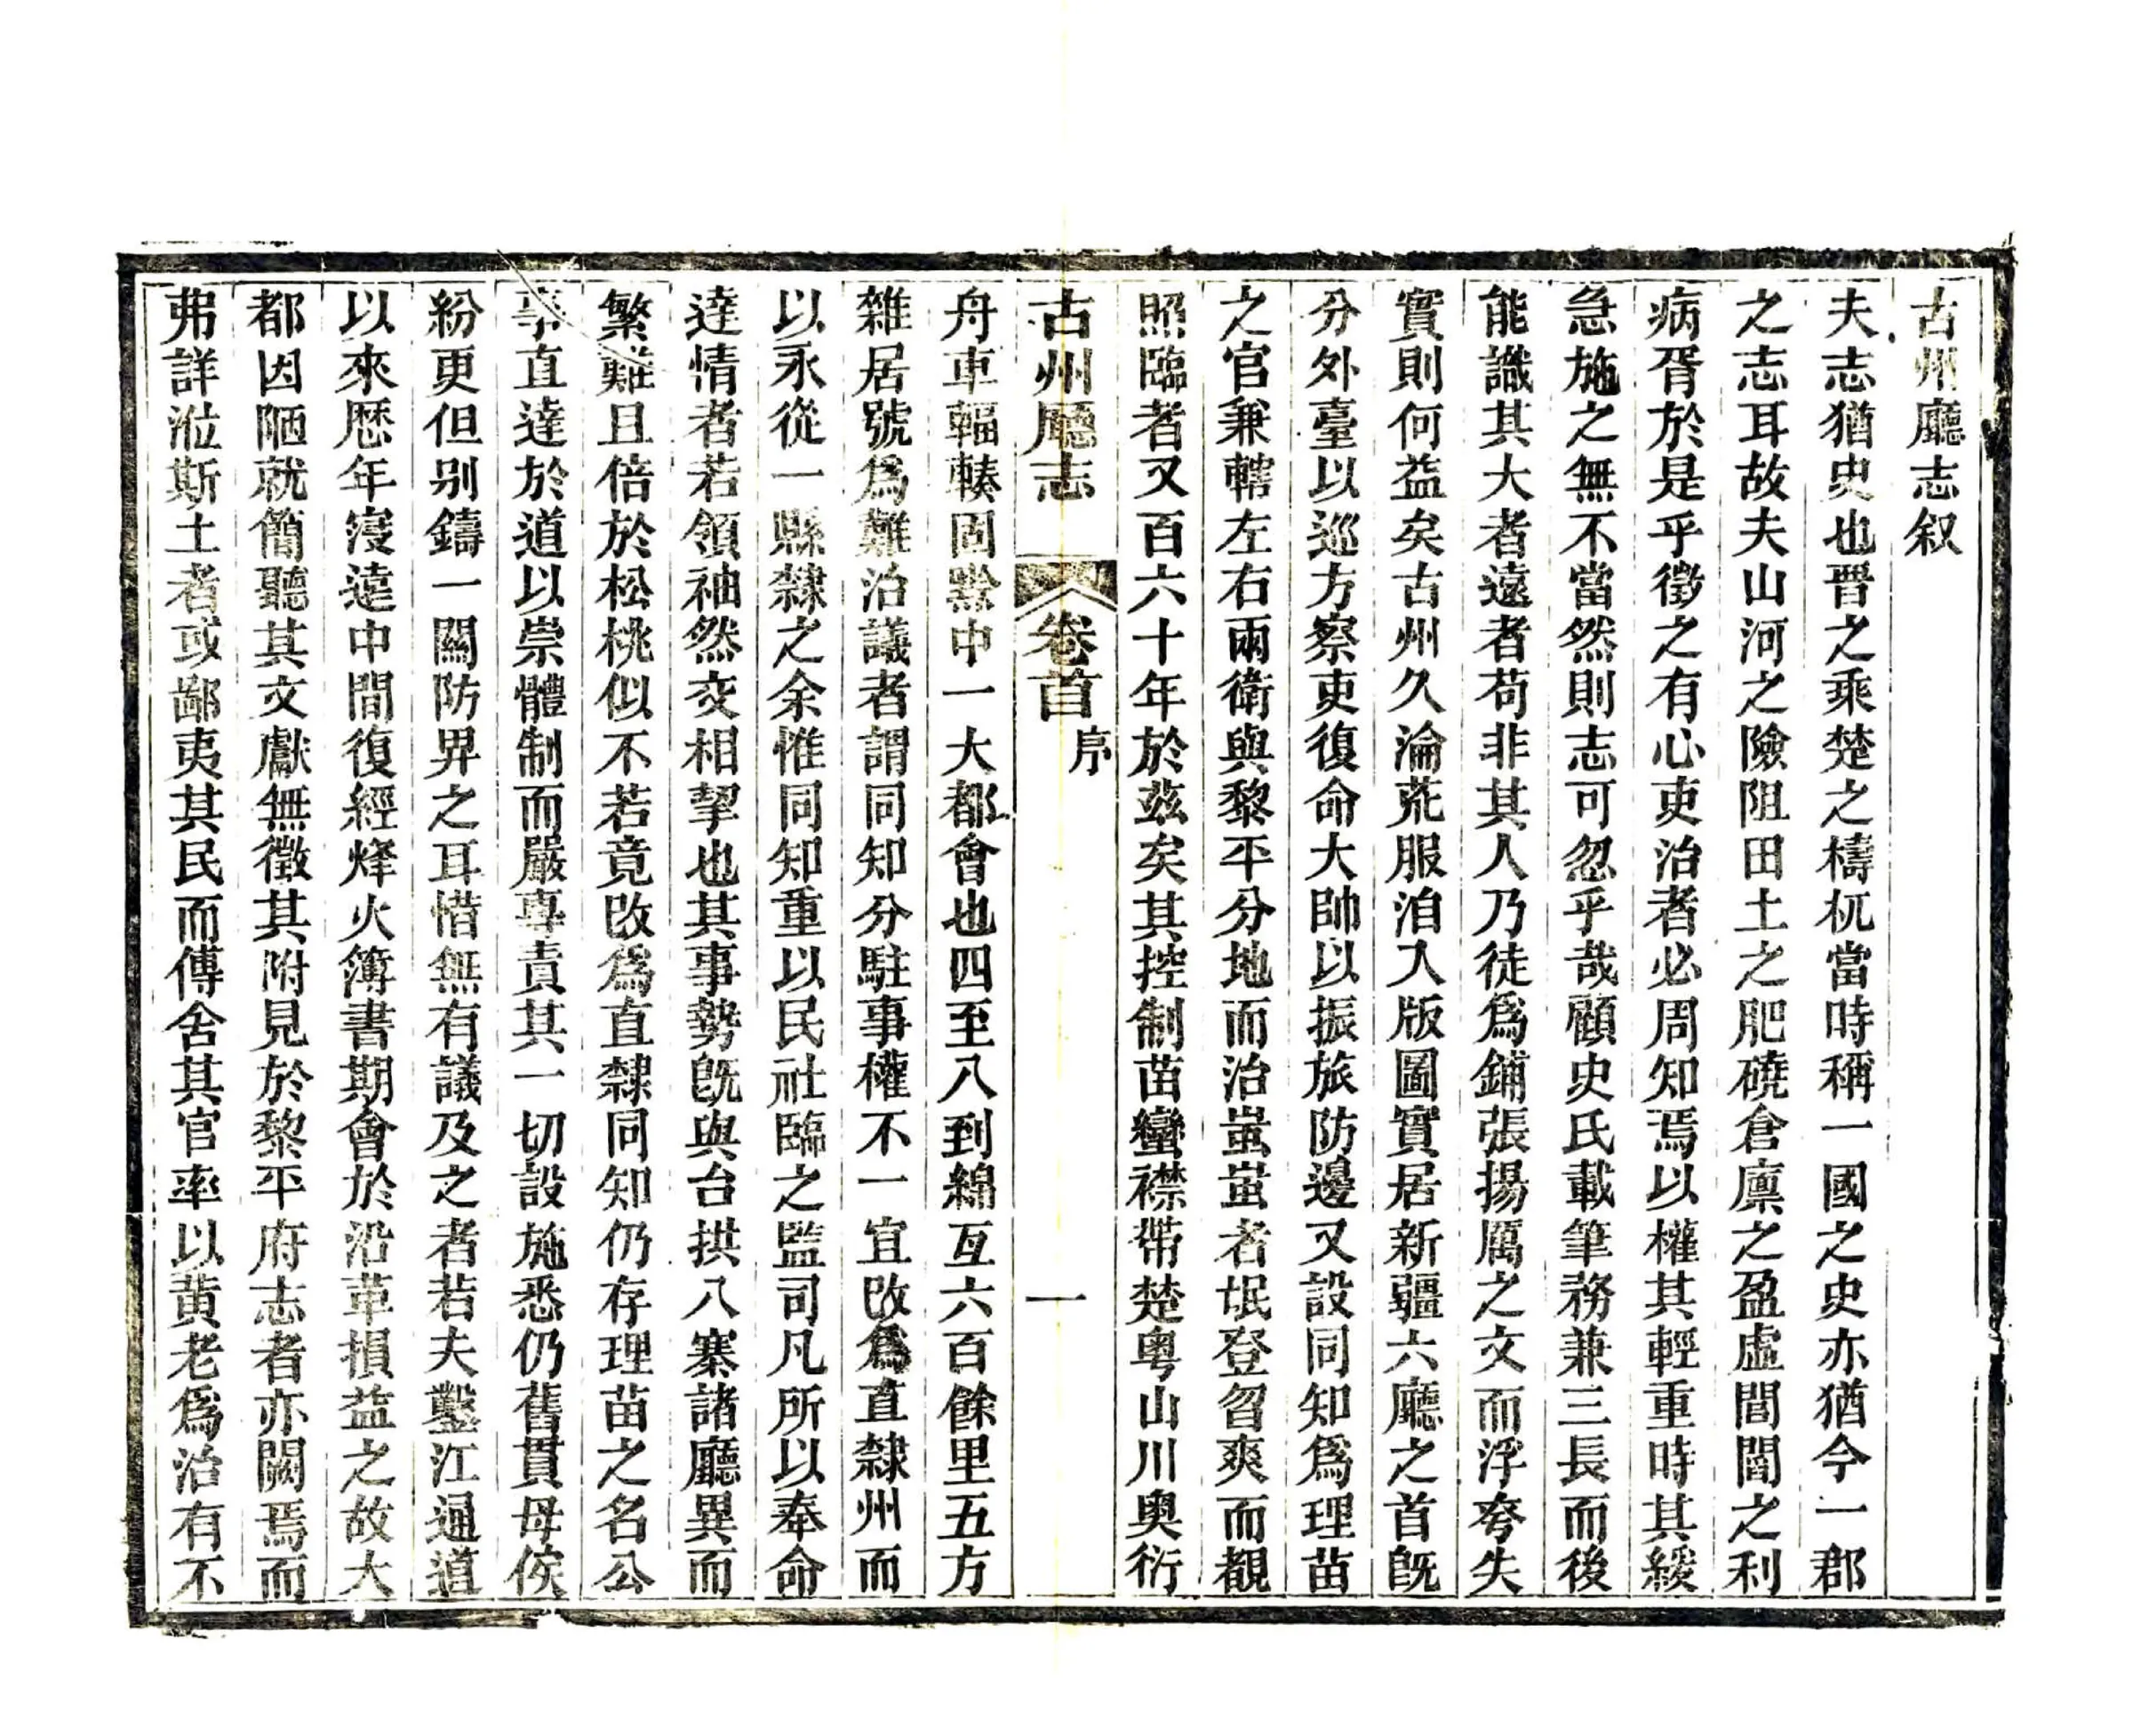 古州廳志叙
夫志猶史也晋之乘楚之檮杌當時稱一國之史亦猶今一郡
之志耳故夫山河之險阻田土之肥磽倉廪之盈虛閭閻之利
病胥於是乎徵之有心吏治者必周知焉以權其輕重時其緩
急施之無不當然則志可忽乎哉顧史氏載筆務兼三長而後
能識其大者遠者苟非其人乃徒爲鋪張揚厲之文而浮夸失
實則何益矣古州久淪荒服洎入版圖實居新疆六廳之首旣
分外臺以巡方察吏復命大帥以振旅防邊又設同知爲理苗
之官兼轄左右兩衛與黎平分地而治蚩蚩者氓登曶爽而覩
照臨者又百六十年於兹矣其控制苗蠻襟帶楚粤山川奥衍
古州廳志
卷首
序
一
舟車輻輳固黔中一大都會也四至八到綿亙六百餘里五方
雜居號爲難治議者謂同知分駐事權不一宜改爲直隸州而
以永從一縣隸之余惟同知重以民社臨之監司凡所以奉命
達情者若領袖然交相挈也其事勢旣與台拱八寨諸廳異而
繁難且倍於松桃似不若竟改爲直隸同知仍存理苗之名公
事直達於道以崇體制而嚴專責其一切設施悉仍舊貫毋俟
紛更但別鑄一關防畀之耳惜無有議及之者若夫鑿江通道
以來歷年寖遠中間復經烽火簿書期會於沿革損益之故大
都因陋就簡聽其文獻無徵其附見於黎平府志者亦闕焉而
弗詳涖斯土者或鄙夷其民而傳舍其官率以黄老爲治有不